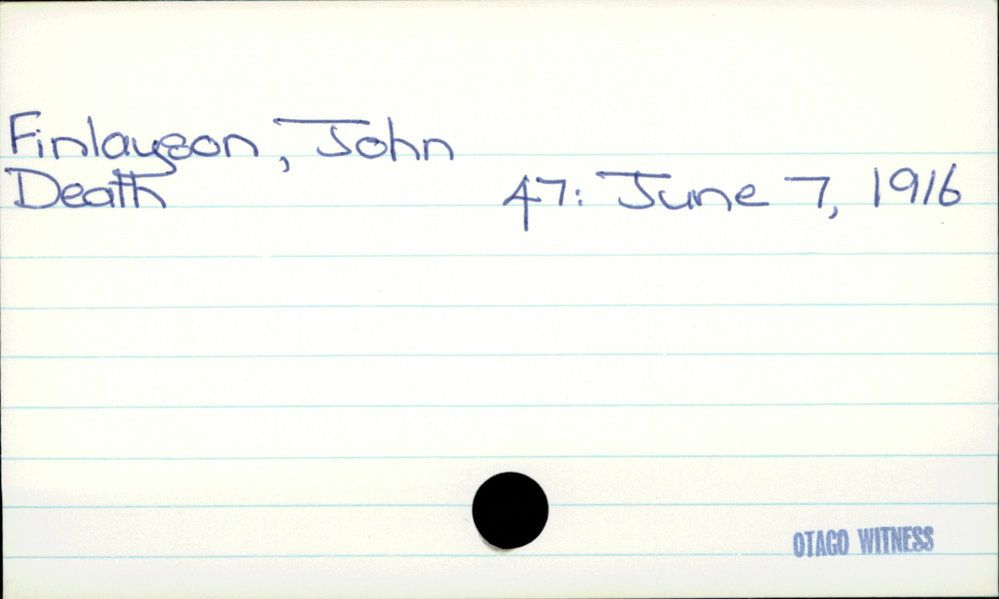 Finlayson, John
Death 47: June 7, 1916
OTAGO WITNESS